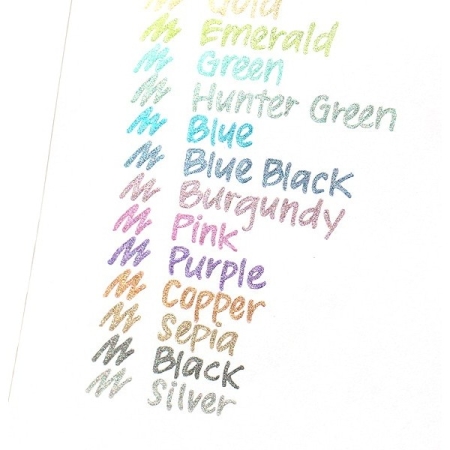 Gold
Emerald
Green
Hunter Green
Blue
Blue Black
Burgundy
Pink
Purple
Copper
Sepia
Black
Silver